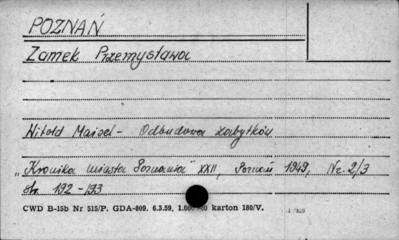 POZNAŃ
Zamek Przemysława
Witold Maisel - Odbudowa zabytków
„Kronika miasta Poznania" XXII, Poznań 1949, Nr. 2/3
str. 192-193
CWD B-15b Nr 515/P. GDA-809. 6.3.59, 1.000 karton 180/V.